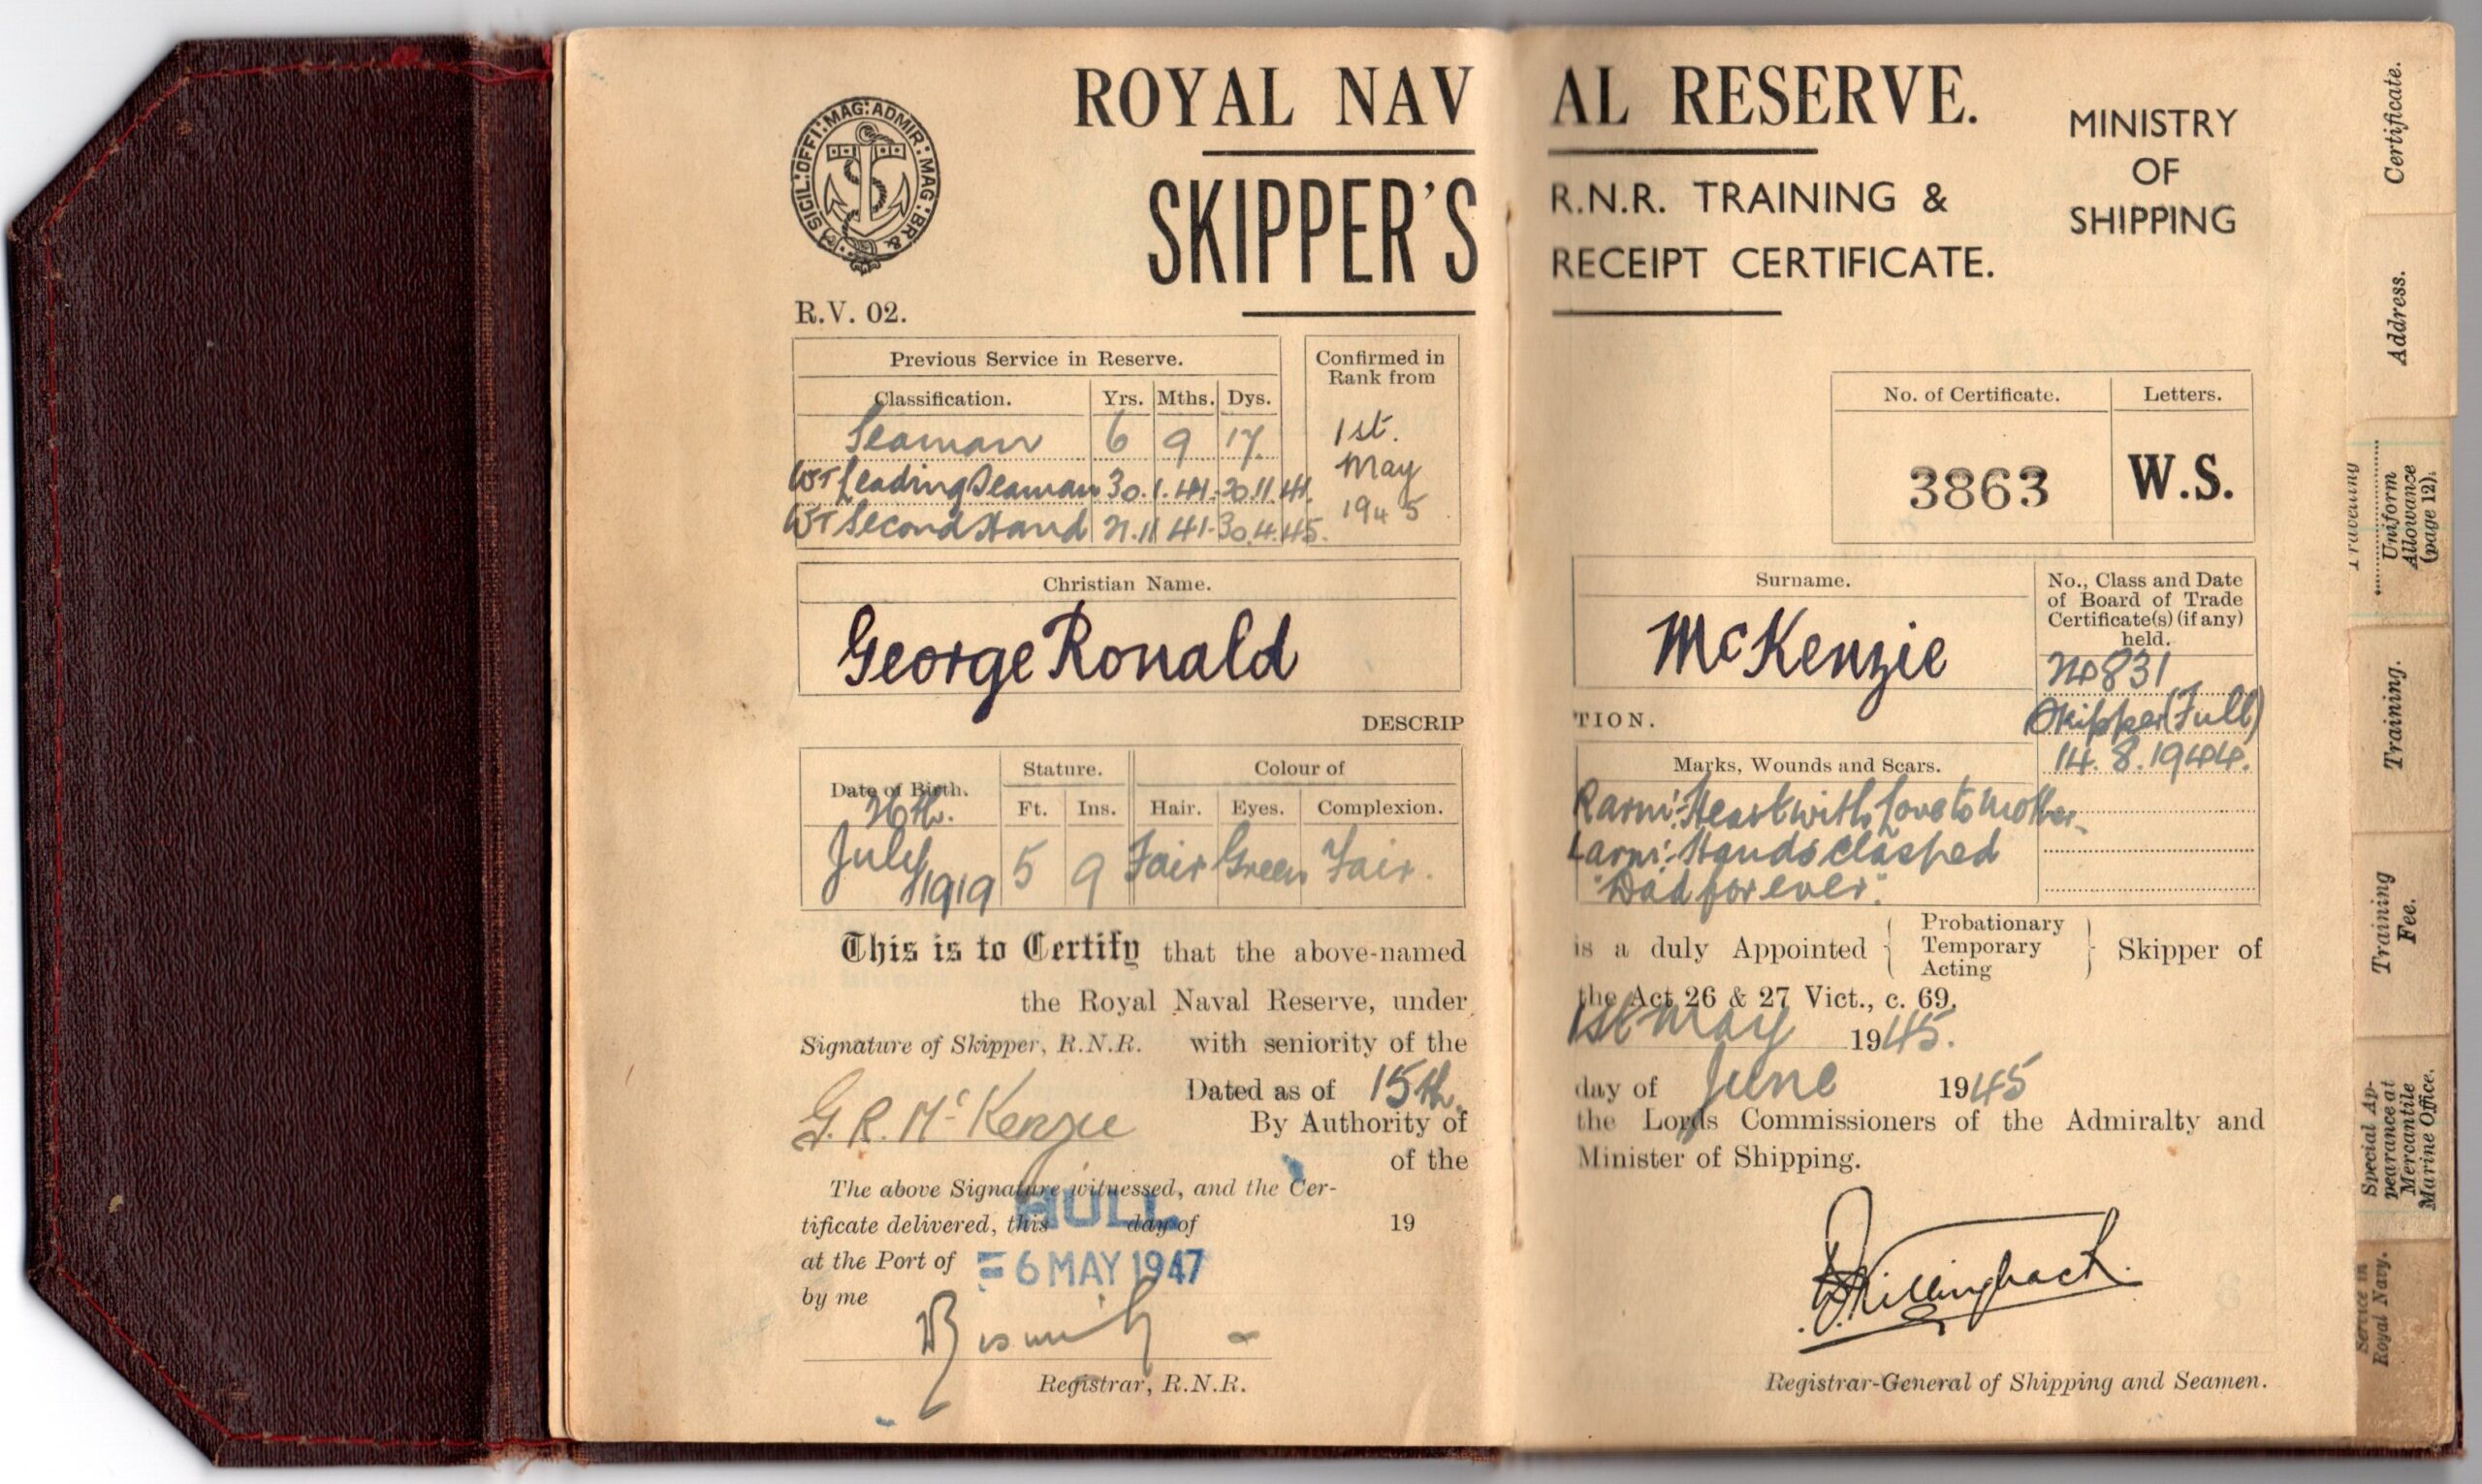 ROYAL NAVAL RESERVE.
SIGIL:OFFI:MAG:ADMIR:MAG:BR:&
SKIPPER'S
R.N.R. TRAINING &
RECEIPT CERTIFICATE.
MINISTRY
OF
SHIPPING
R.V. 02.
Previous Service in Reserve.
Classification. Yrs. Mths. Dys.
Seaman 6 9 17.
WT Leading Seaman 30.1.41.-20.11.41.
WT Second Hand 21.11.41-30.4.45.
Confirmed in
Rank from
1st.
May
1945
No. of Certificate. Letters.
3863 W.S.
Christian Name.
George Ronald
Surname.
McKenzie
No., Class and Date
of Board of Trade
Certificate(s) (if any)
held.
No 831
Skipper (Full)
14.8.1944.
DESCRIPTION.
Date of Birth.
26th.
July
1919
Stature.
Ft. Ins.
5 9
Colour of
Hair. Eyes. Complexion.
Fair Green Fair.
Marks, Wounds and Scars.
R arm:- Heart with Love to Mother.
L arm:- Hands clasped
"Dad for ever".
This is to Certify that the above-named is a duly Appointed { Probationary Temporary Acting } Skipper of
the Royal Naval Reserve, under the Act 26 & 27 Vict., c. 69,
Signature of Skipper, R.N.R. with seniority of the 1st May 1945.
Dated as of 15th. day of June 1945
G.R. McKenzie
By Authority of the Lords Commissioners of the Admiralty and
of the Minister of Shipping.
The above Signature witnessed, and the Cer-
tificate delivered, this day of 19
HULL
at the Port of
= 6 MAY 1947
by me
Registrar, R.N.R.
Registrar-General of Shipping and Seamen.
Certificate.
Address.
Travelling
Uniform
Allowance
(page 12).
Training.
Training
Fee.
Special Ap-
pearance at
Mercantile
Marine Office.
Service in
Royal Navy.